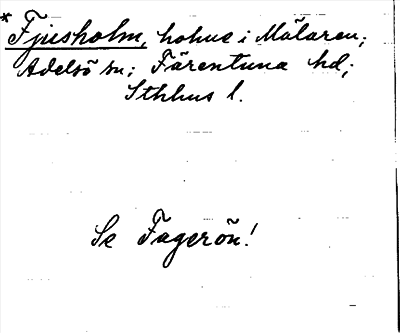 *Fjusholm, hohus i Mälaren;
Adelsö sn; Färentuna hd;
Sthhus l.
Se Fagerön!